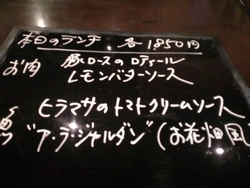 本日のランチ 各1,850円
お肉 豚ロースのロティール
レモンバターソース
お魚 ヒラマサのトマトクリームソース
"ア・ラ・ジャルダン"(お花畑風)